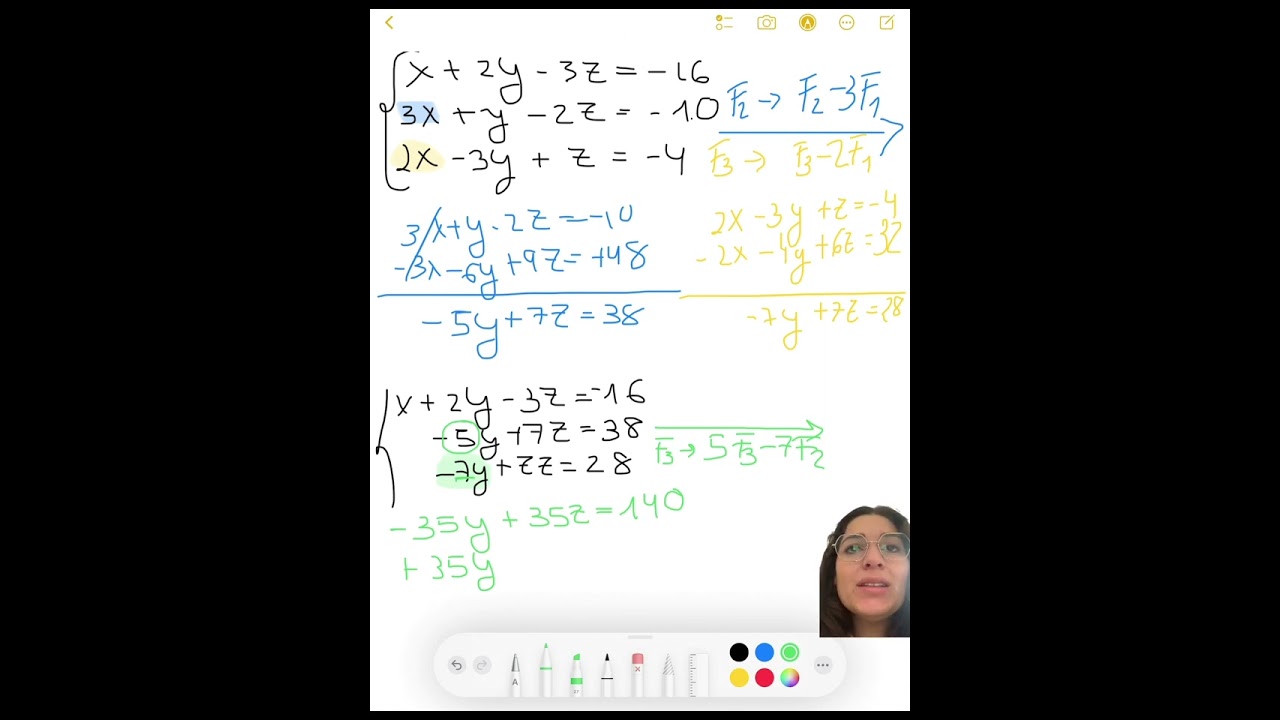 x + 2y - 3z = -16
3x + y - 2z = -10
2x - 3y + z = -4
F2 → F2 - 3F1
F3 → F3 - 2F1
3x + y - 2z = -10
-3x - 6y + 9z = +48
-5y + 7z = 38
2x - 3y + z = -4
- 2x - 4y + 6z = 32
-7y + 7z = 28
x + 2y - 3z = -16
-5y + 7z = 38
-7y + 7z = 28
F3 → 5F3 - 7F2
-35y + 35z = 140
+ 35y